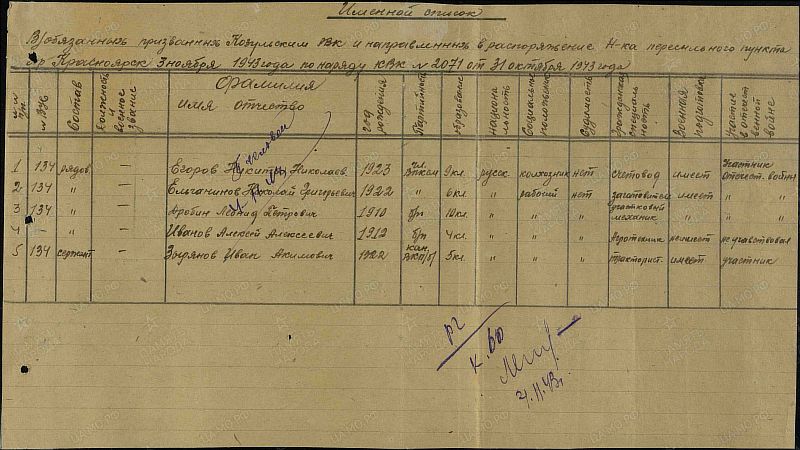 Именной список
В/обязанных призванных Козульским РВК и направленных в распоряжение Н-ка пересыльного пункта
гор Красноярск 3 ноября 1943 года по наряду КВК № 2071 от 31 октября 1943 года
№ ВУС Состав Должность и военное звание Фамилия имя отчество год рождения Партийность образование национальность Социальное положение Судимость Гражданская специальность Военная подготовка Участие в отечественной войне
1 134 рядов. — Егоров Никита Николаев. 1923 чл. ВЛКСМ 9 кл. русск. колхозник нет счетовод имеет Участник отечест. войны
2 134 " — Ельчанинов Николай Григорьевич 1922 " 6 кл. " рабочий нет заготовитель имеет " "
3 134 " — Дробин Леонид Петрович 1910 б/п 10 кл. " " " участковый механик " " "
4 — " — Иванов Алексей Алексеевич 1912 б/п 4 кл. " " " неимеет не участвовал
5 134 сержант — Зырянов Иван Акимович 1922 кан. ВКП/б/ 5 кл. " " " тракторист. имеет участник
к. 60
4.11.43г.